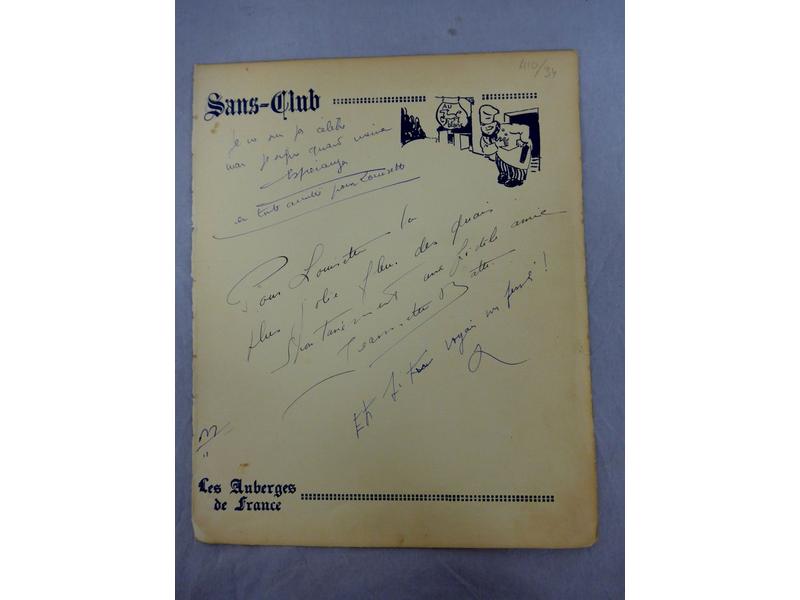 410/34
Sans-Club
AU
Je ne suis pas célèbre
mais quand même
en toute amitié pour Louisette
Pour Louisette la
plus jolie fleur des quais
Spontanément une fidèle amie
Jeannette Batti
Et si tu voyais mes fesses !
Les Auberges
de France